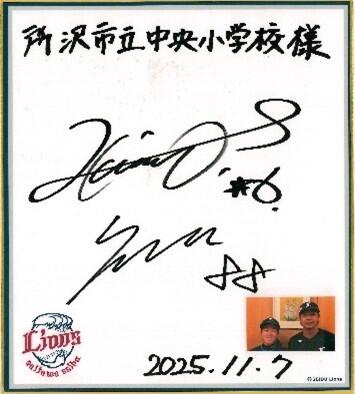 所沢市立中央小学校様
#6
88
Lions
saitama seibu
2025.11.7
©SEIBU Lions